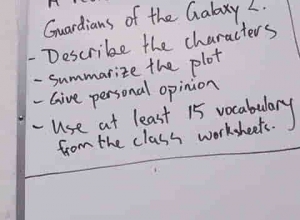 Guardians of the Galaxy 2.
- Describe the characters
- Summarize the plot
- Give personal opinion
- Use at least 15 vocabulary
from the class worksheets.